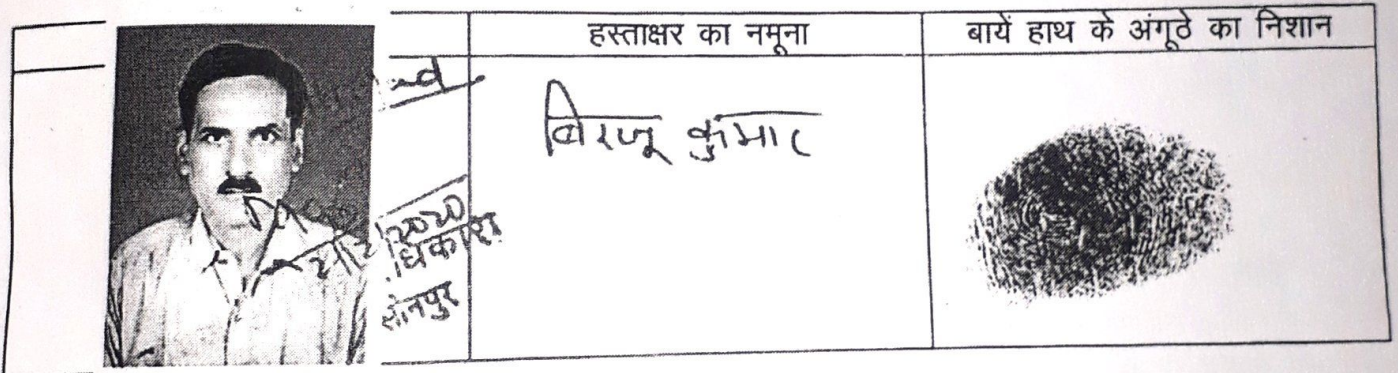 हस्ताक्षर का नमूना
बायें हाथ के अंगूठे का निशान
बिरजू कुमार
2020
धिकारी
सोनपुर